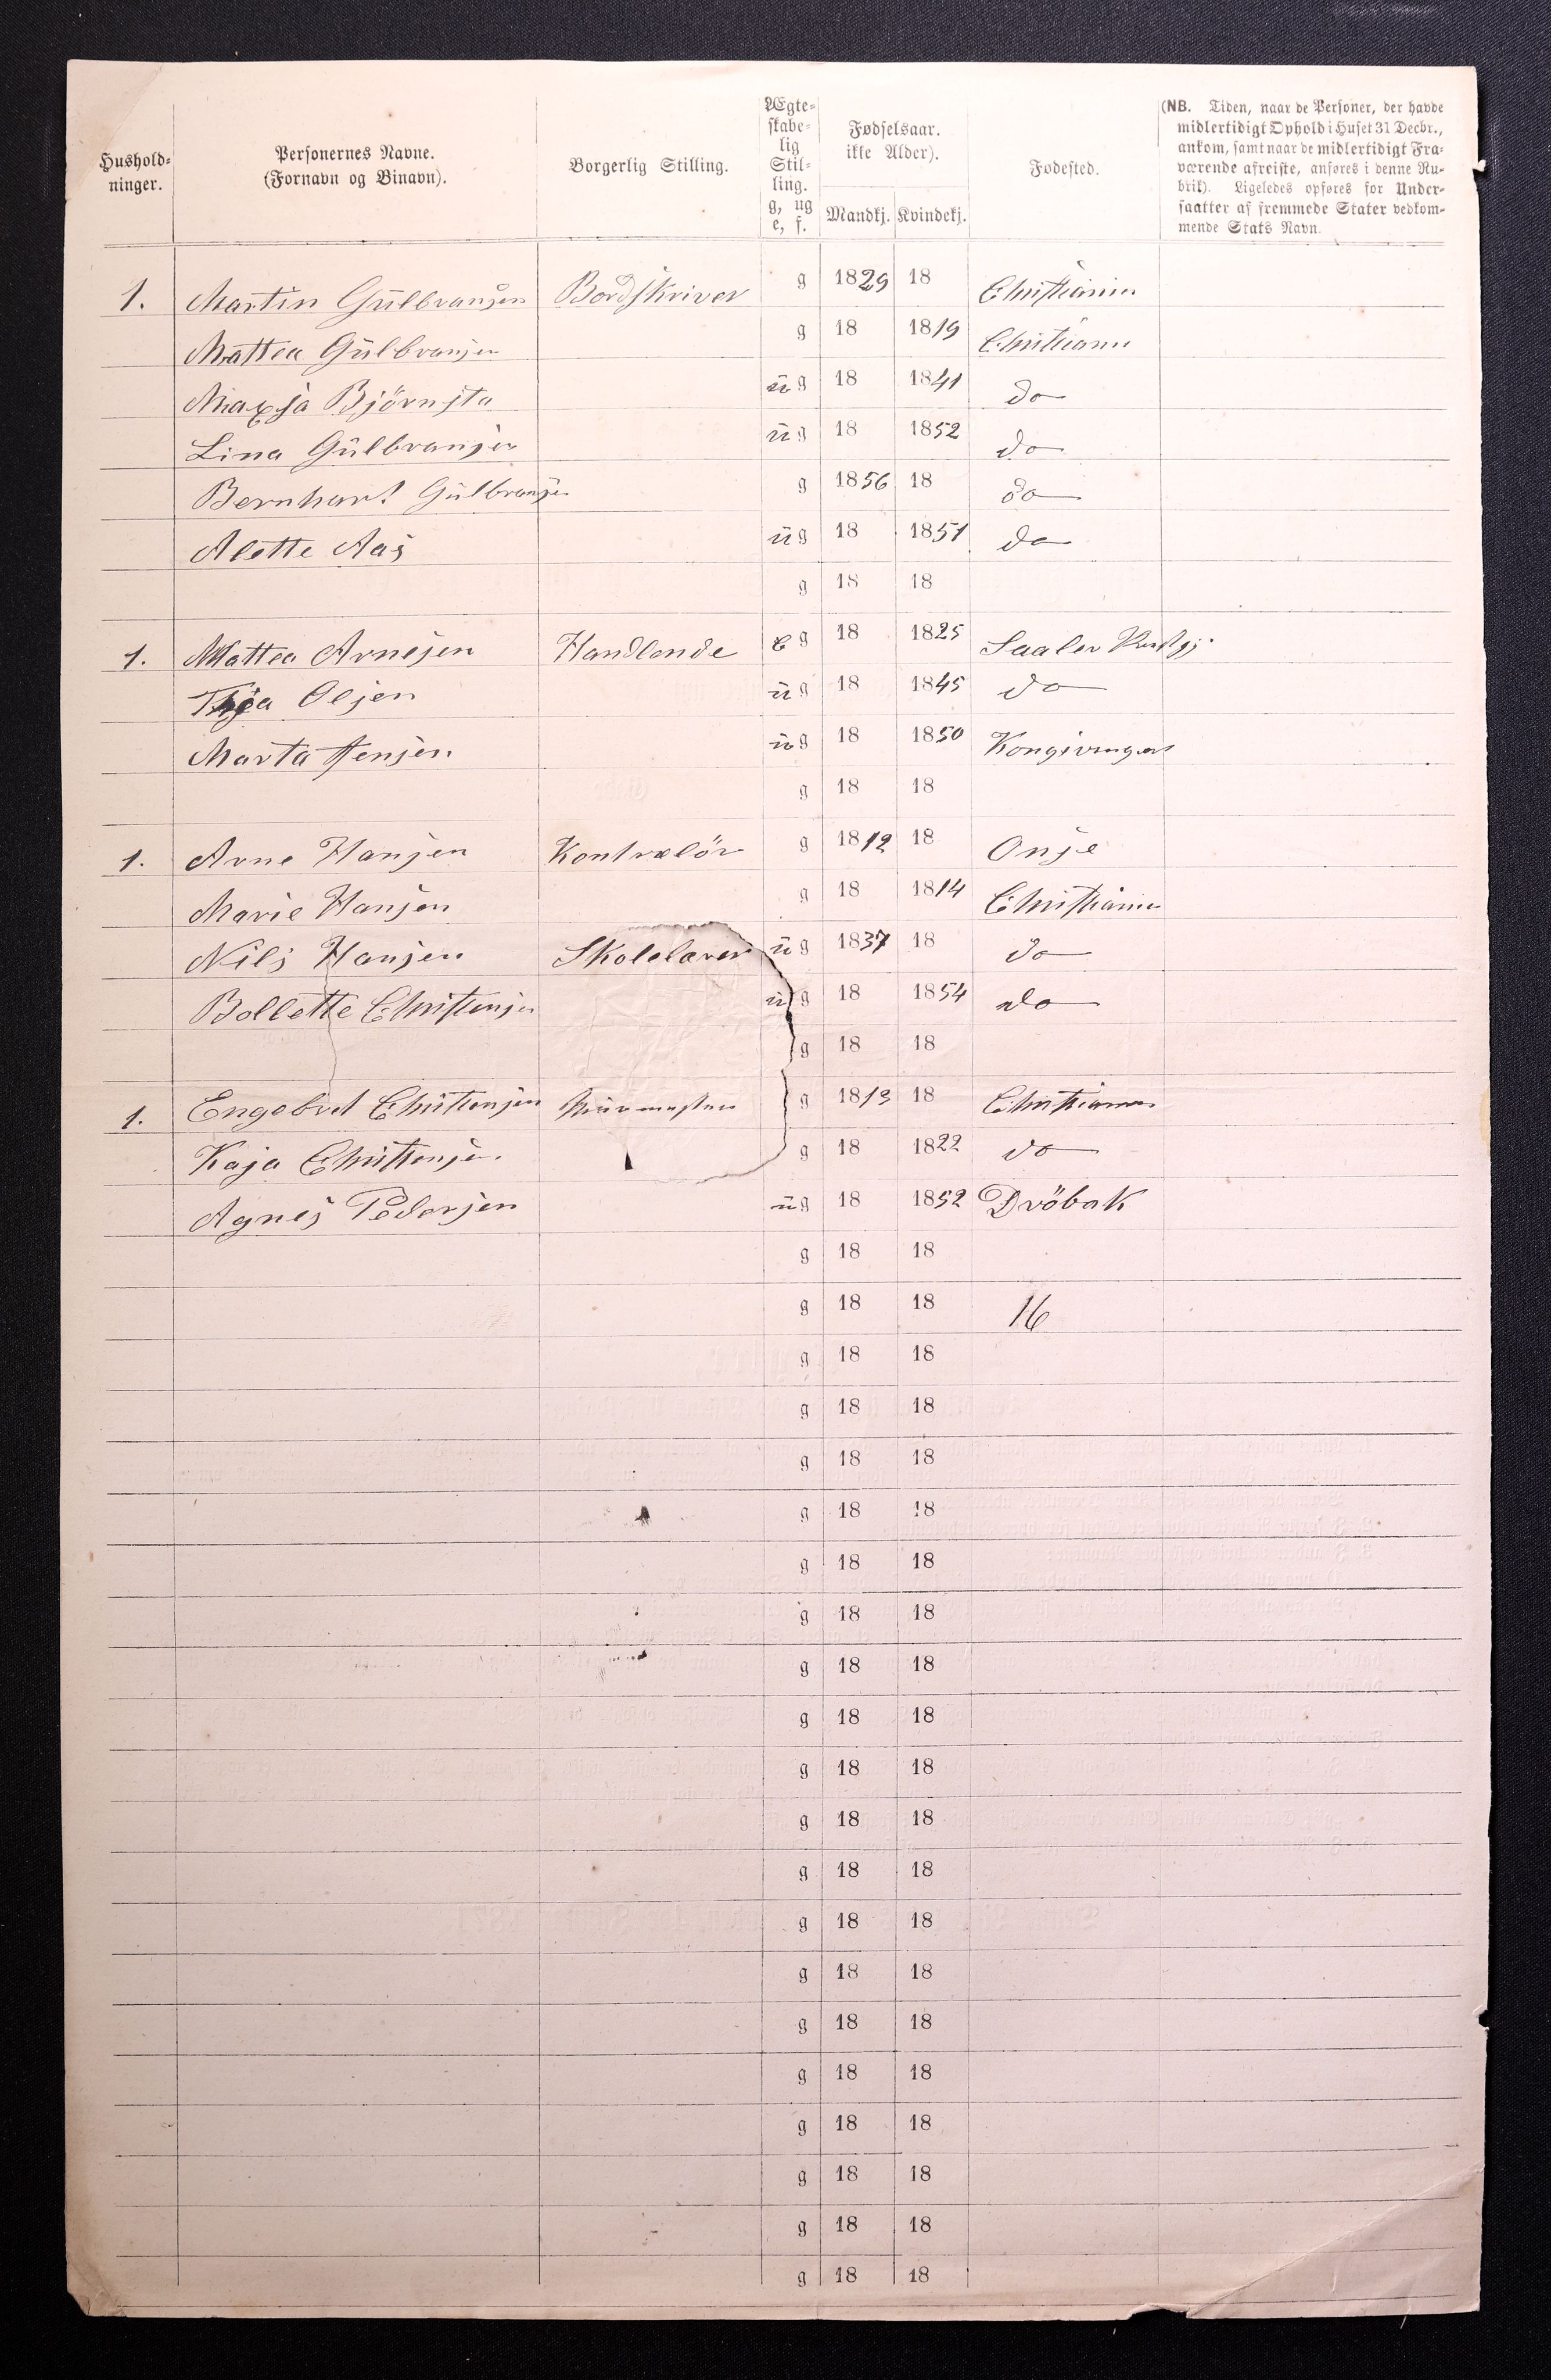 Hushold-
ninger.
Personernes Navne.
(Fornavn og Binavn).
Borgerlig Stilling.
Ægte-
skabe-
lig
Stil-
ling.
g, ug
e, f.
Fødselsaar.
ikke Alder).
Mandkj. Kvindekj.
Fødested.
(NB. Tiden, naar de Personer, der havde
midlertidigt Ophold i Huset 31 Decbr.,
ankom, samt naar de midlertidigt Fra-
værende afreiste, anføres i denne Ru-
brik). Ligeledes opføres for Under-
saatter af fremmede Stater vedkom-
mende Stats Navn.
1. Martin Gulbransen Bordskriver g 1829 18 Christiania
Mattea Gulbransen g 18 1819 Christiania
Björnsta ug 18 1841 do
Lina Gulbransen ug 18 1852 do
Bernhart Gulbransen g 1856 18 do
Alette Aas ug 18 1851 do
g 18 18
1. Mattea Arnesen Handlende e g 18 1825 Saaler
Olsen ug 18 1845 do
Marta Jensen ug 18 1850 Kongsvinger
g 18 18
1. Arne Hansen Kontrolör g 1812 18 Onse
Marie Hansen g 18 1814 Christiania
Nils Hansen Skolelærer ug 1837 18 do
Bollette Christensen ug 18 1854 do
g 18 18
1. Engebret Christensen g 1813 18 Christiania
Kaja Christensen g 18 1822 do
Agnes Pedersen ug 18 1852 Dröbak
g 18 18
g 18 18 16
g 18 18
g 18 18
g 18 18
g 18 18
g 18 18
g 18 18
g 18 18
g 18 18
g 18 18
g 18 18
g 18 18
g 18 18
g 18 18
g 18 18
g 18 18
g 18 18
g 18 18
g 18 18
g 18 18